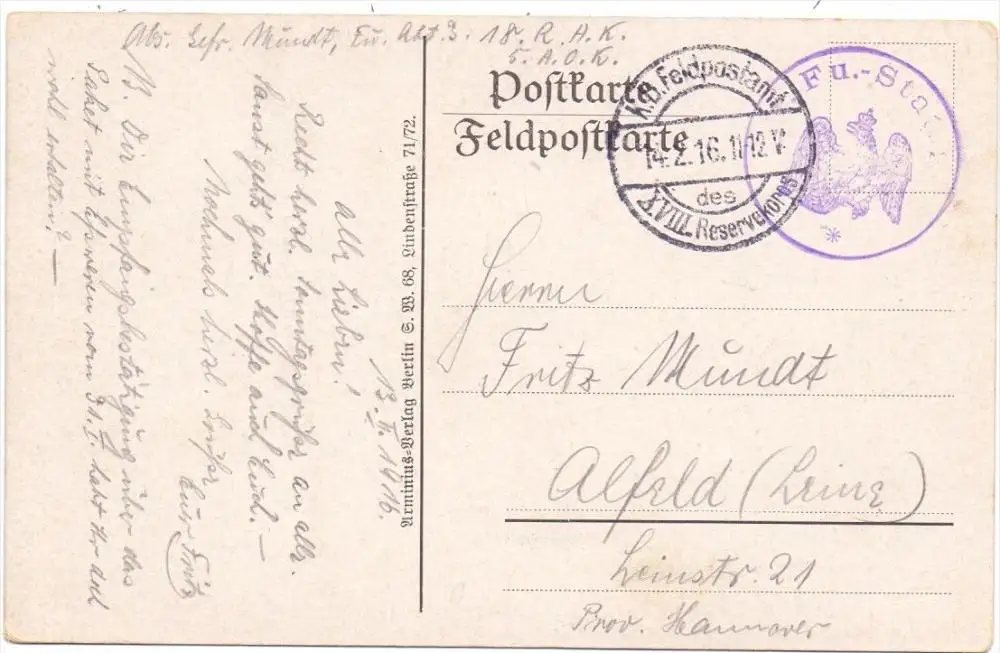 Abs. Gefr. Mundt, Fu. Abt. 3. 18. R. A. K.
5. A. O. K.
Postkarte
Feldpostkarte
K.D. Feldpostamt
14.2.16. 11-12 V
des
XVIII. Reservekorps
Fu.-Stat
Arminius-Verlag Berlin S. W. 68, Lindenstraße 71/72.
13. II. 1916.
Alle Lieben!
Recht herzl. Sonntagsgrüße an alle.
Sonst geht's gut. Hoffe auch Euch. —
Nochmals herzl. Grüße
Euer Fritz
N.B. Die Empfangsbestätigung über das
Paket mit vom 31. I. habt Ihr auch
wohl erhalten? —
Herrn
Fritz Mundt
Alfeld (Leine)
Leinstr. 21
Prov. Hannover